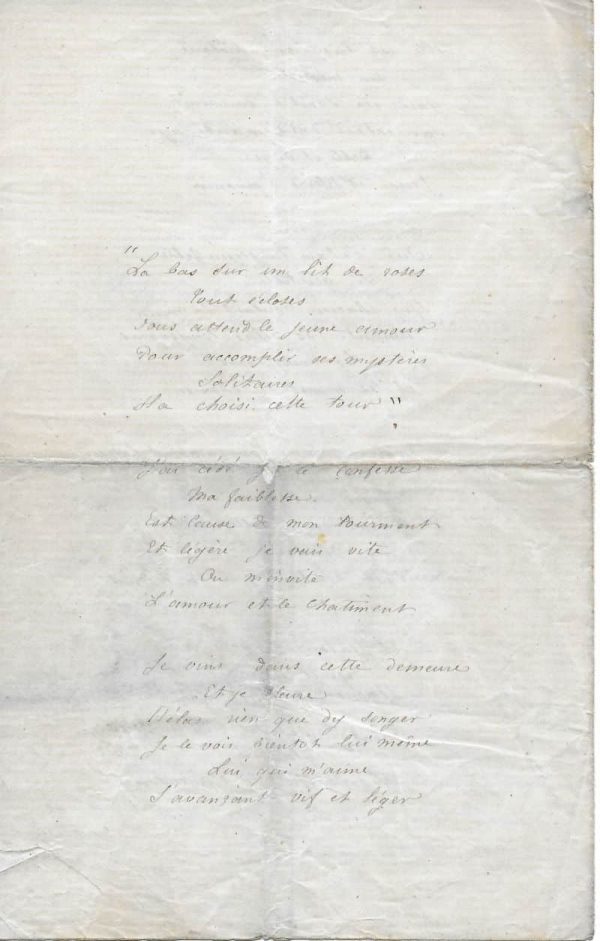 "La bas sur un lit de roses
Tout écloses
Vous attend le jeune amour
Pour accomplir ses mystères
Solitaires
Il a choisi cette tour"
J'ai cédé je le confesse
Ma faiblesse
Est cause de mon tourment
Et légère je vais vite
Ou m'invite
L'amour et le chatiment
Je vins dans cette demeure
Et je pleure
Hélas rien que d'y songer
Je le vois bientot lui même
Lui qui m'aime
S'avansant vif et léger